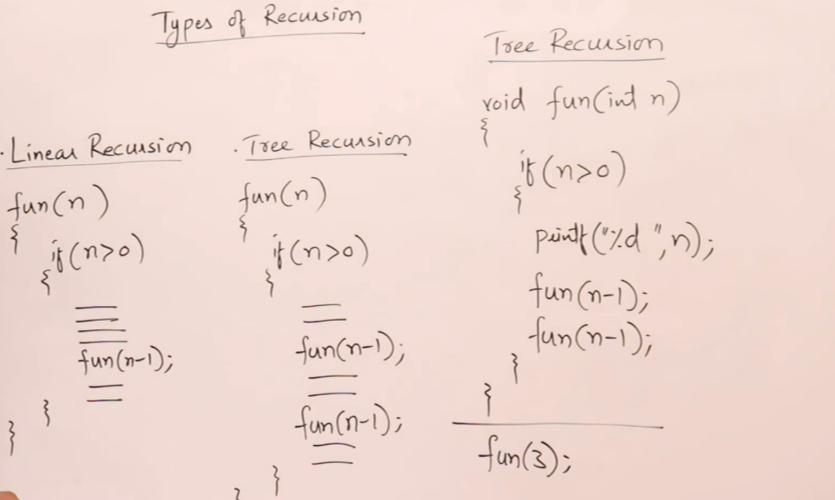 Types of Recursion
. Linear Recursion
fun(n)
{
if(n>0)
{
fun(n-1);
}
}
. Tree Recursion
fun(n)
{
if(n>0)
{
fun(n-1);
fun(n-1);
}
}
Tree Recursion
void fun(int n)
{
if(n>0)
{
printf("%d ",n);
fun(n-1);
fun(n-1);
}
}
fun(3);